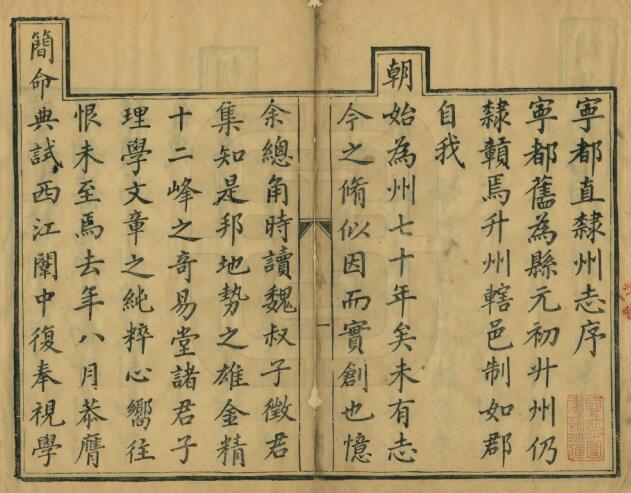 寧都直隸州志序
寧都舊為縣元初升州仍
隸贑焉升州轄邑制如郡
自我
朝始為州七十年矣未有志
今之脩似因而實創也憶
余總角時讀魏叔子徵君
集知是邦地勢之雄金精
十二峰之奇易堂諸君子
理學文章之純粹心嚮往
恨未至焉去年八月恭膺
簡命典試西江闈中復奉視學